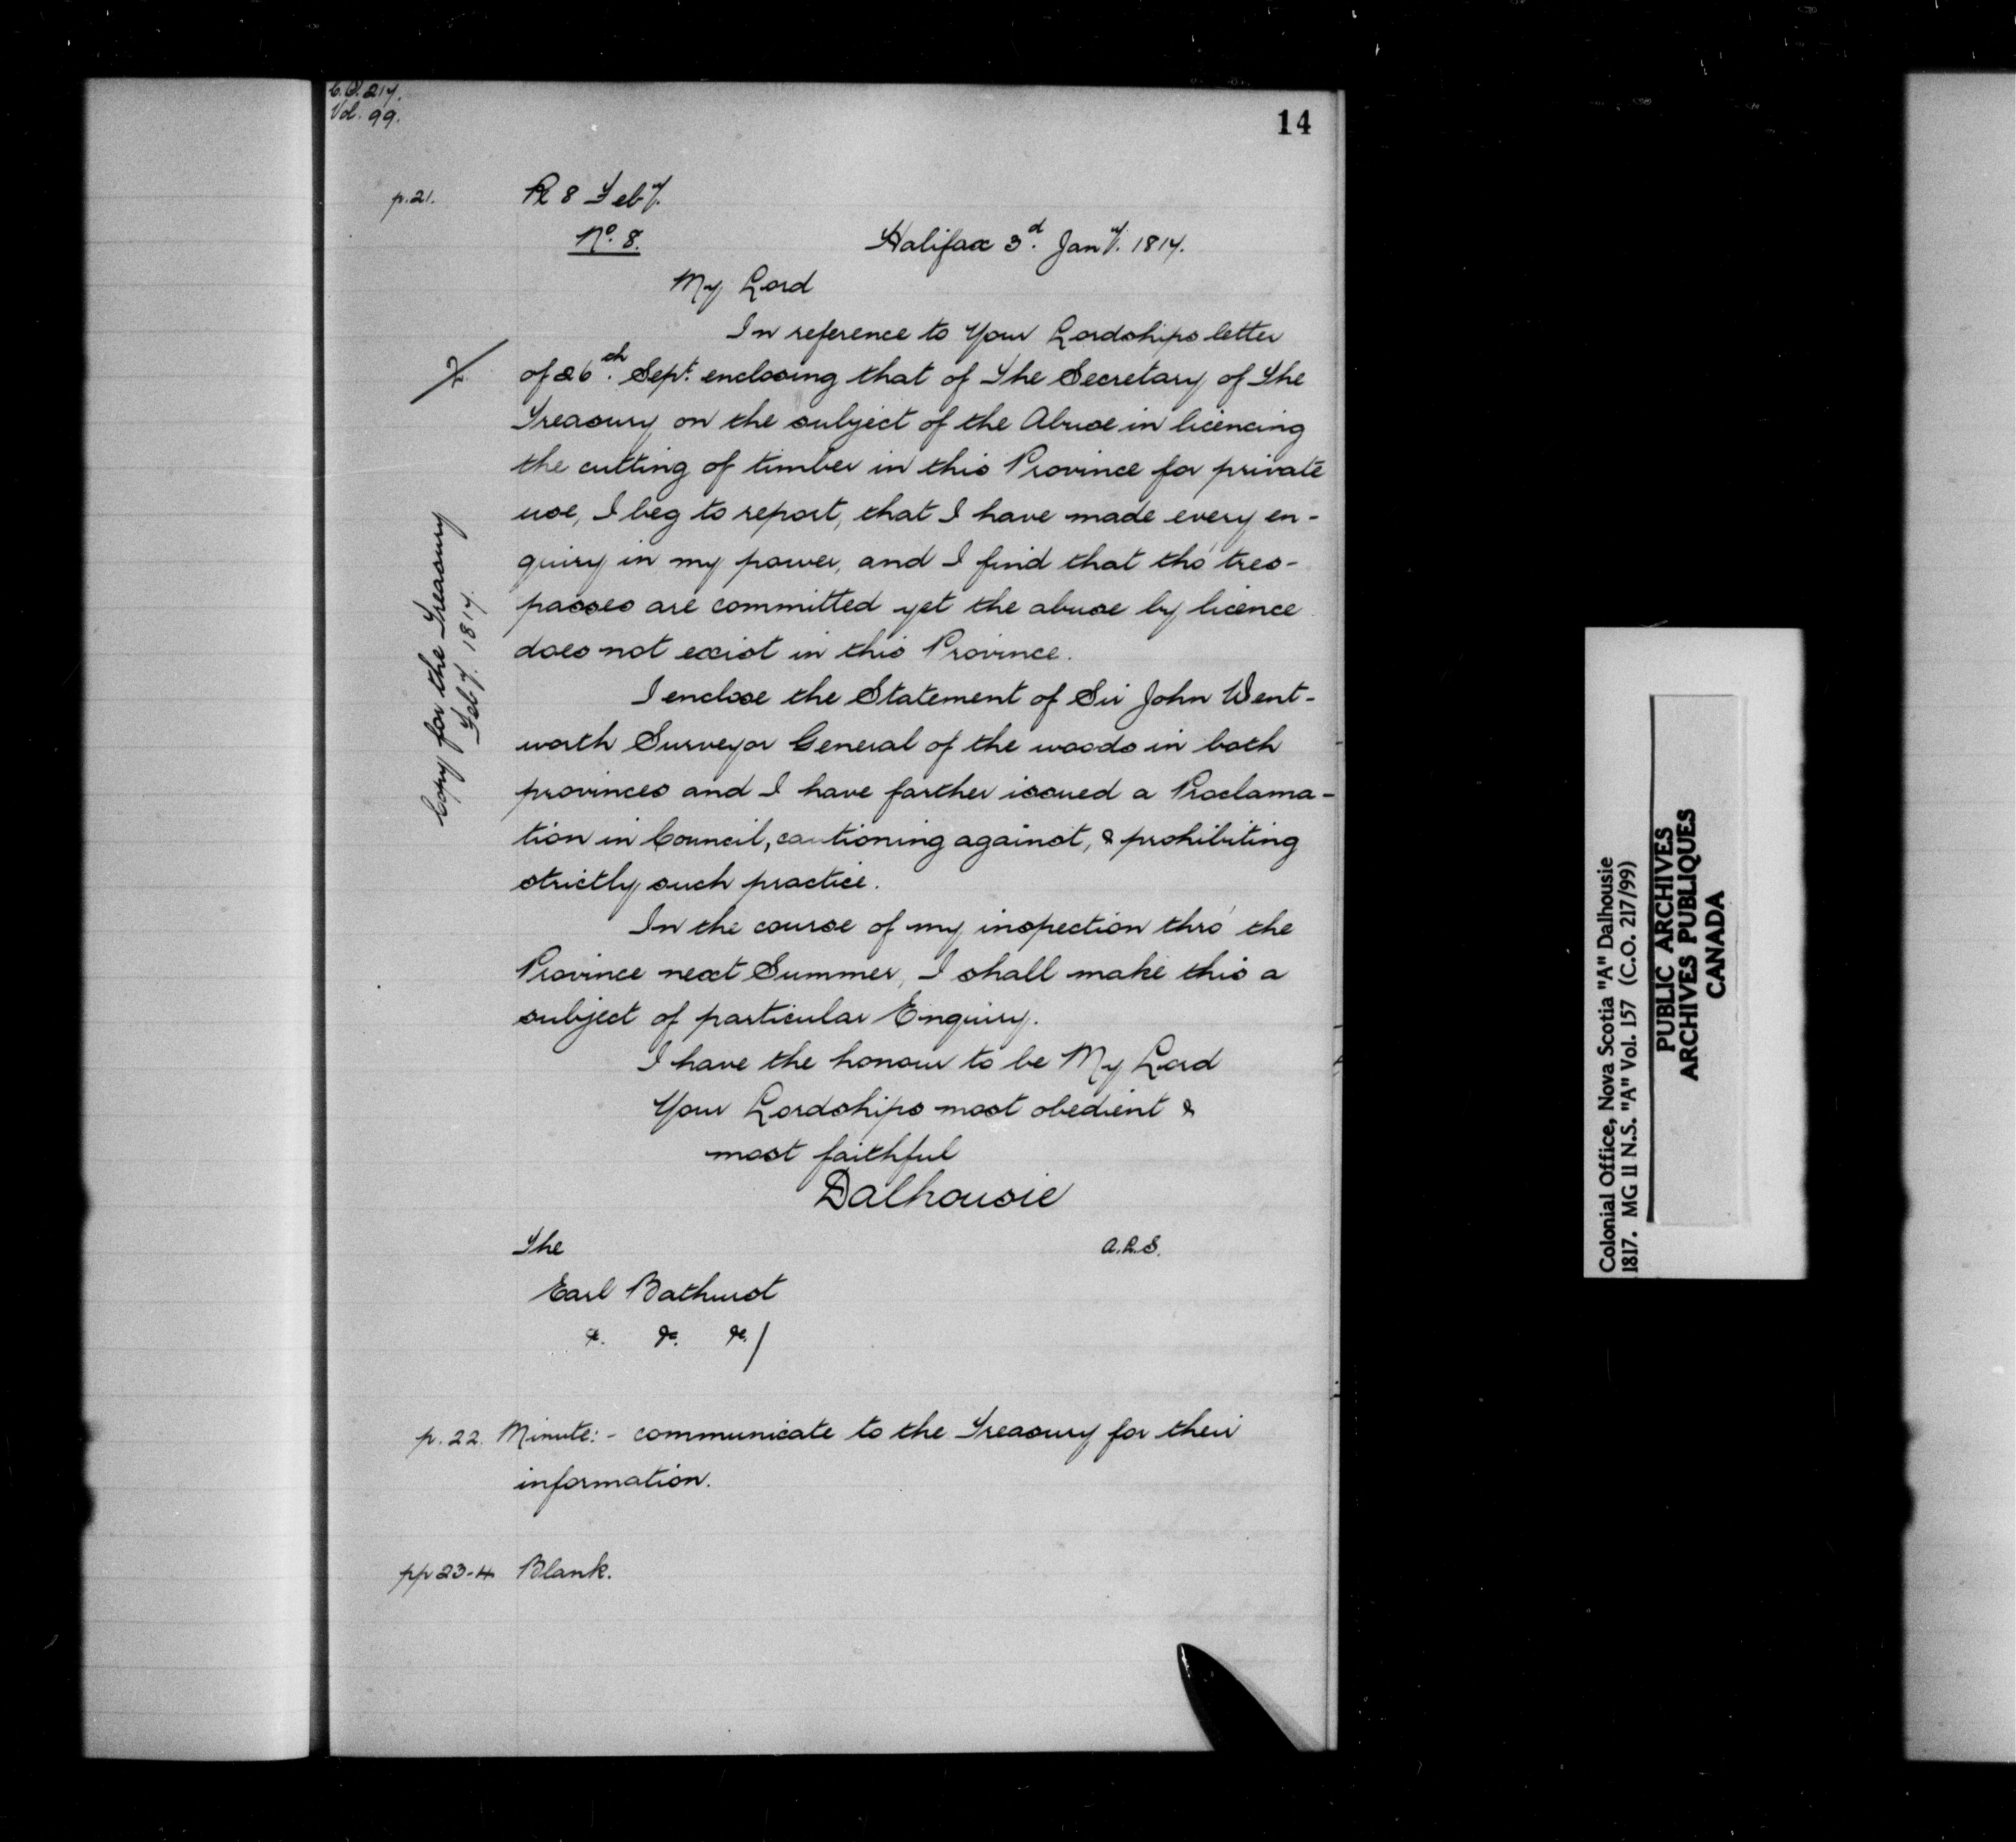 C.O. 217.
Vol. 99.
14
p. 21.
R 8 Feby.
No. 8.
Halifax 3d. Jany. 1817.
My Lord
In reference to Your Lordships letter
of 26th. Sept. enclosing that of The Secretary of The
Treasury on the subject of the Abuse in licencing
the cutting of timber in this Province for private
use, I beg to report, that I have made every en-
quiry in my power, and I find that tho' tres-
passes are committed yet the abuse by licence
does not exist in this Province.
I enclose the Statement of Sir John Went-
worth Surveyor General of the woods in both
provinces and I have farther issued a Proclama-
tion in Council, cautioning against, & prohibiting
strictly such practice.
In the course of my inspection thro' the
Province next Summer, I shall make this a
subject of particular Enquiry.
I have the honour to be My Lord
Your Lordships most obedient &
most faithful
Dalhousie
The
A.L.S.
Earl Bathurst
&. &c. &c./
Copy for the Treasury
Feby. 1817.
p. 22. Minute:- communicate to the Treasury for their
information.
pp 23-4 Blank.
Colonial Office, Nova Scotia "A" Dalhousie
1817. MG 11 N.S. "A" Vol. 157 (C.O. 217/99)
PUBLIC ARCHIVES
ARCHIVES PUBLIQUES
CANADA